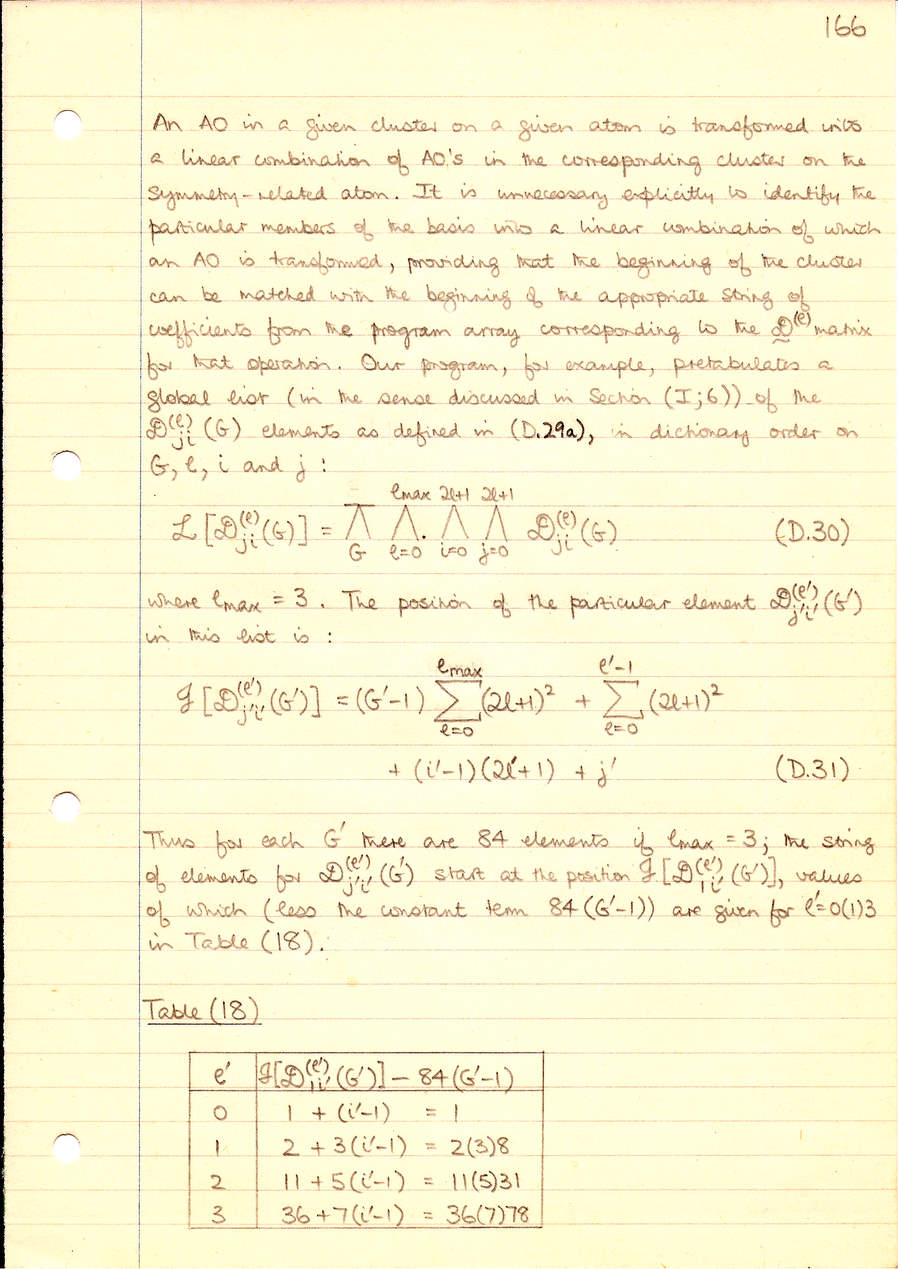 166
An AO in a given cluster on a given atom is transformed into
a linear combination of AO's in the corresponding cluster on the
symmetry-related atom. It is unnecessary explicitly to identify the
particular members of the basis into a linear combination of which
an AO is transformed, providing that the beginning of the cluster
can be matched with the beginning of the appropriate string of
coefficients from the program array corresponding to the 𝒟^(ℓ) matrix
for that operation. Our program, for example, pretabulates a
global list (in the sense discussed in Section (I;6)) of the
𝒟_ji^(ℓ) (G) elements as defined in (D.29a), in dictionary order on
G, ℓ, i and j :
ℒ [𝒟_ji^(ℓ) (G)] = Λ_G Λ_{ℓ=0}^{ℓmax} Λ_{i=0}^{2ℓ+1} Λ_{j=0}^{2ℓ+1} 𝒟_ji^(ℓ) (G) (D.30)
where ℓmax = 3. The position of the particular element 𝒟_j'i'^(ℓ') (G')
in this list is :
𝒥 [𝒟_j'i'^(ℓ') (G')] = (G'-1) Σ_{ℓ=0}^{ℓmax} (2ℓ+1)² + Σ_{ℓ=0}^{ℓ'-1} (2ℓ+1)²
+ (i'-1)(2ℓ'+1) + j' (D.31)
Thus for each G' there are 84 elements if ℓmax = 3; the string
of elements for 𝒟_j'i'^(ℓ') (G') start at the position 𝒥 [𝒟_1i'^(ℓ') (G')], values
of which (less the constant term 84(G'-1)) are given for ℓ'=0(1)3
in Table (18).
Table (18)
ℓ' 𝒥[𝒟_1i'^(ℓ') (G')] - 84(G'-1)
0 1 + (i'-1) = 1
1 2 + 3(i'-1) = 2(3)8
2 11 + 5(i'-1) = 11(5)31
3 36 + 7(i'-1) = 36(7)78